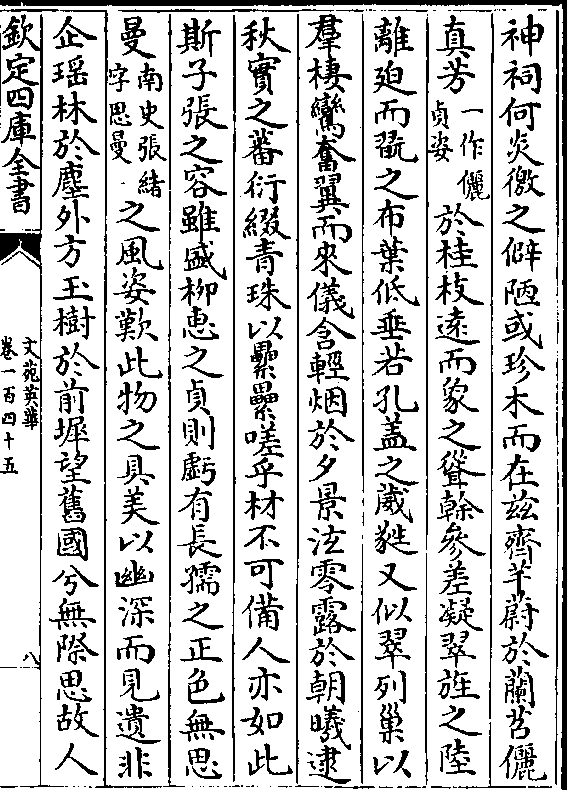 神祠何炎徼之僻陋或珍木而在兹齊芊蔚於蘭苕儷
真芳一作儷貞姿於桂枝遠而象之聳榦參差凝翠旌之陸
離廹而翫之布葉低垂若孔盖之葳蕤又似翠列巢以
羣棲鸞奮翼而來儀含輕烟於夕景泫零露於朝曦逮
秋實之蕃衍綴青珠以纍纍嗟乎材不可備人亦如此
斯子張之容雖盛柳惠之貞則虧有長孺之正色無思
曼南史張緒字思曼之風姿歎此物之具美以幽深而見遺非
企瑶林於塵外方玉樹於前墀望舊國兮無際思故人
欽定四庫全書
文苑英華
卷一百四十五
八